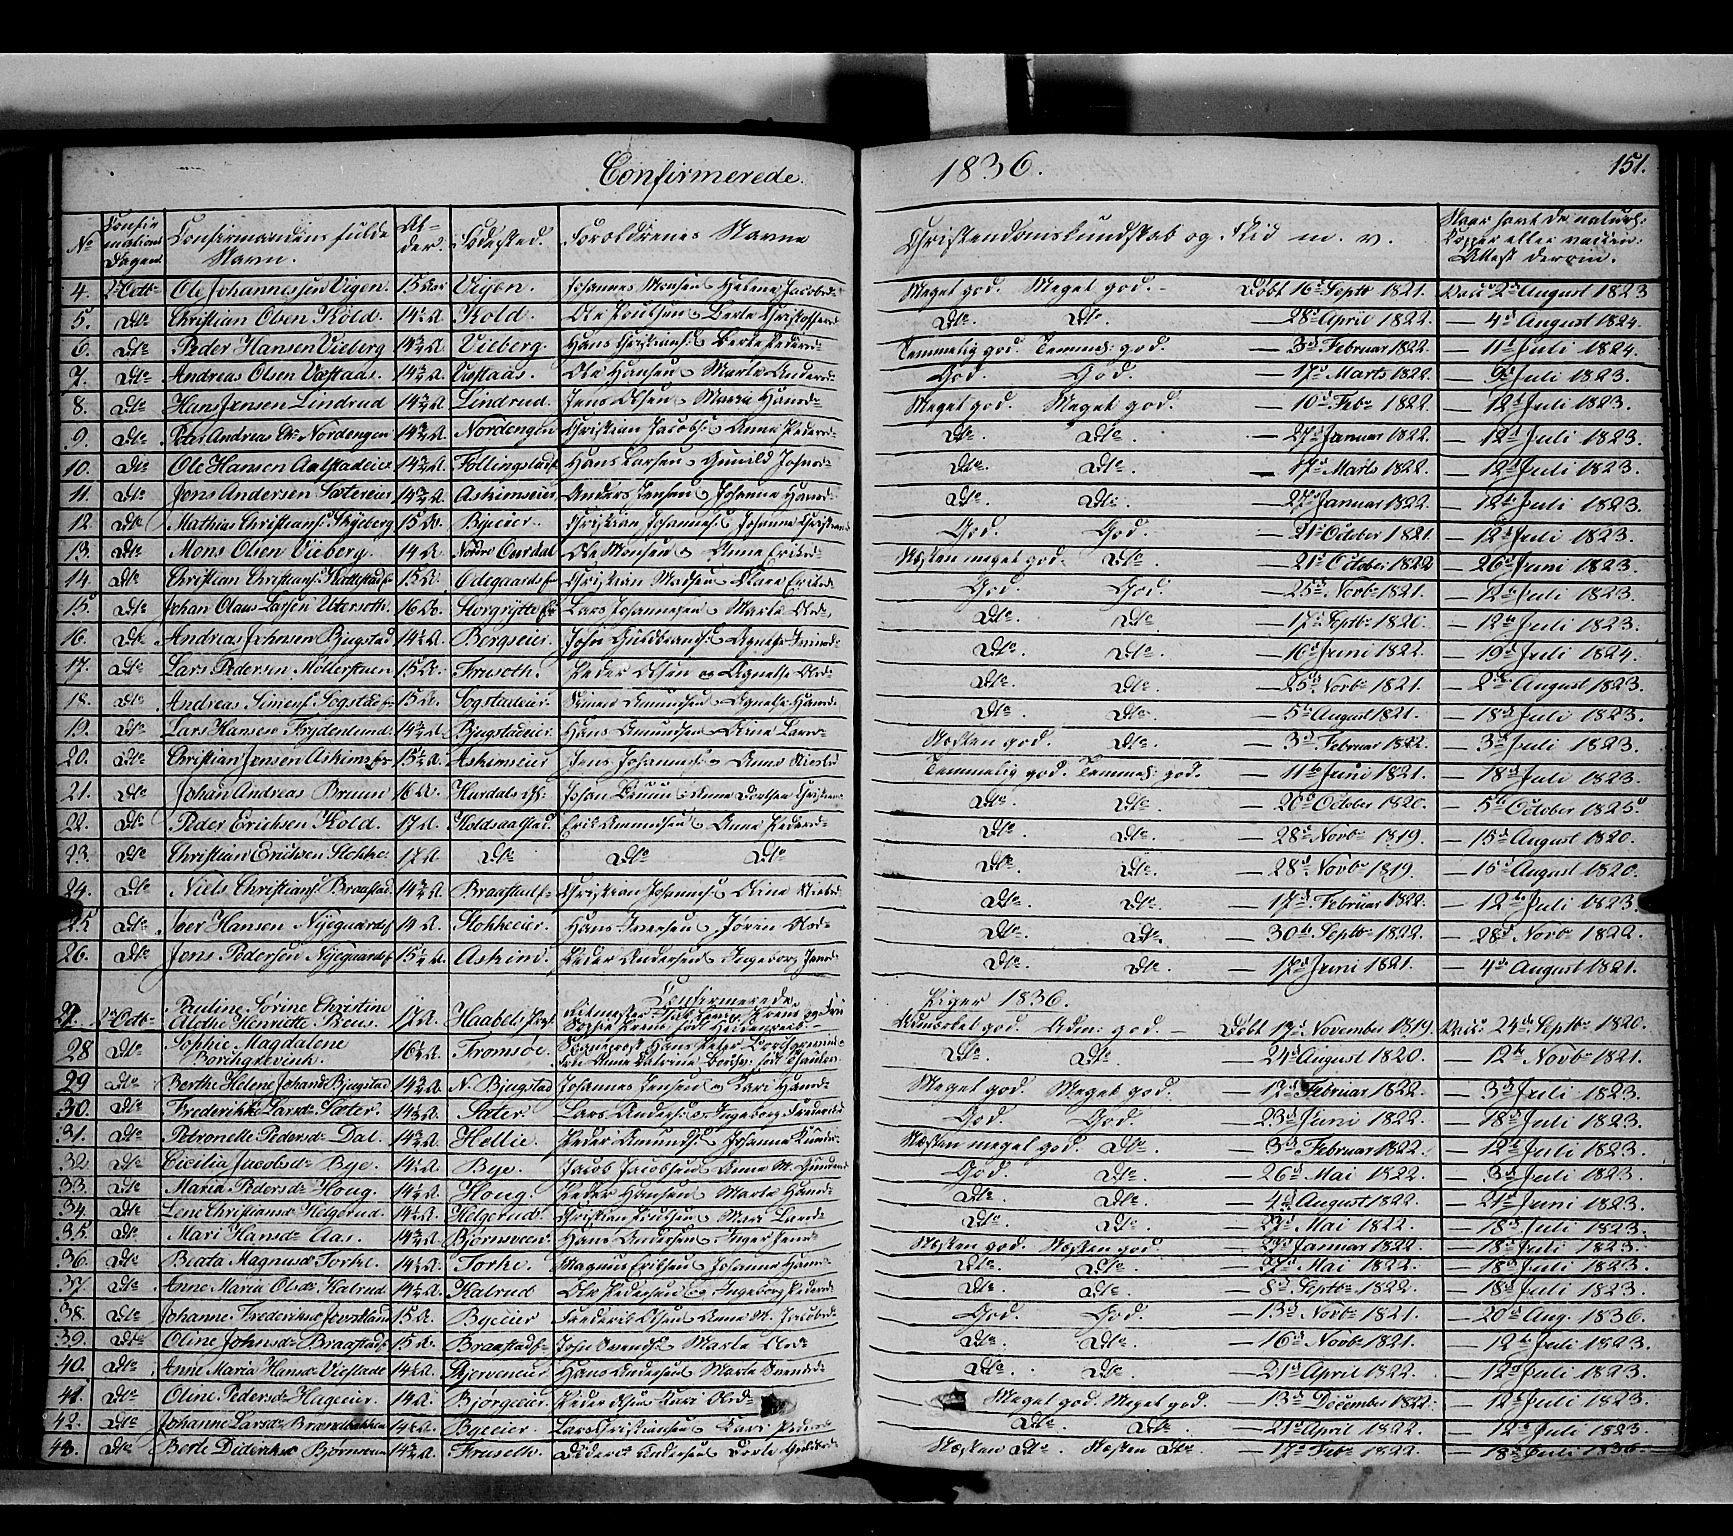 Confirmerede 1836. 151.
No Confirmations Dagen. Confirmandens fulde Navn. Alder. Fødested. Forældrenes Navne Christendomskundskab og Flid m. v. Naar havt de naturl: Kopper eller vaccin: Attest derom.
4. 2 Octb Ole Johannesen Vigen. 15 Aar Vigen. Johannes Monsen & Helene Jacobsd Meget god. Meget god. Døbt 16 Septb 1821. Vacc 2 August 1823
5. Do Christian Olsen Kold. 14½ A. Kold. Ole Poulsen & Berte Christoffersd Do. Do. — 28 April 1822. — 4 August 1824.
6. Do Peder Hansen Vieberg 14¾ A. Vieberg. Hans Christians: & Berte Pedersd Temmelig god. Temmel: god. — 3 Februar 1822. — 11 Juli 1824.
7. Do Andreas Olsen Væstaas. 14¾ A. Væstaas. Ole Hansen & Marte Andersd God. God. — 17 Marts 1822. — 9 Juli 1823.
8. Do Hans Jensen Lindrud 14¾ A. Lindrud. Jens Olsen & Marie Hansd Meget god. Meget god. — 10 Feb 1822. — 12 Juli 1823.
9. Do Peter Andreas Chr Nordengen 14¾ A. Nordengen Christian Jacobs: & Anne Pedersd Do. Do. — 27 Januar 1822. — 12 Juli 1823.
10. Do Ole Hansen Aalstadeier 14¾ A. Føllingstad Hans Larsen & Gunild Johnsd Do. Do. — 17 Marts 1822. — 12 Juli 1823.
11. Do Jens Andersen Sætereier 14¾ A. Askimseier Anders Jensen & Johanne Hansd Do. Do. — 27 Januar 1822. — 12 Juli 1823.
12 Do Mathias Christians: Skyberg 15 A. Byeeier. Christian Johannes: & Johanne Christiansd God. God. — 21 October 1821. — 12 Juli 1823.
13. Do Mons Olsen Vieberg. 14 A. Nordre Ourdal Ole Monsen & Anne Eriksd Næsten meget god. Do. — 21 October 1822 — 26 Juni 1823.
14. Do Christian Christians: Kattstad 15 A. Ødegaards Christian Madsen & Clare Eriksd God. God. — 25 Novb 1821. — 12 Juli 1823.
15. Do Johan Olaus Larsen Utersoth. 16 A. Storgrytte Lars Johannesen & Marte Olsd Do. Do. — 17 Septb 1820. — 12 Juli 1823.
16. Do Andreas Johnsen Bjugstad 14½ A. Bergseier. John Guldbrands: & Agnethe Do. Do. — 16 Juni 1822. — 19 Juli 1824.
17. Do Lars Pedersen Møllerstuen 15 A. Frusoth. Peder Olsen og Agnethe Olsd Do. Do. — 25 Novb 1821. — 2 August 1823.
18. Do Andreas Simens: Sogstad 15 A. Sogstadeier. Simen Amundsen & Agnethe Hansd Do. Do. — 5 August 1821. — 18 Juli 1823.
19. Do Lars Hansen Frydenlund 14¾ A. Bjugstadeier. Hans Amundsen & Eline Larsd Næsten god. Do. — 3 Februar 1822. — 3 Juli 1823.
20. Do Christian Jensen Askims 15½ A. Askimseier Jens Johannes: & Anne Nielsd Temmelig god. Temmel: god. — 11 Juni 1821. — 18 Juli 1823.
21. Do Johan Andreas Bruun 16 A. Hurdals Johan Bruun & Anne Dorthea Christens Do. Do. — 20 October 1820. — 5 October 1825
22. Do Peder Erichsen Kold. 17 A. Koldsaalstad. Erik Amundsen & Anne Pedersd Do. Do. — 28 Novb 1819. — 15 August 1820.
23. Do Christian Erichsen Stokke. 17 A. Do Do Do Do. Do. — 28 Novb 1819. — 15 August 1820.
24. Do Niels Christians: Braastad 14¾ A. Braastad Christian Johannes: & Eline Nielsd Do. Do. — 17 Februar 1822. — 12 Juli 1823.
25 Do Iver Hansen Nyegaards 14 A. Stokkeeier. Hans Iversen & Jøren Olsd Do. Do. — 30 Septb 1822. — 28 Novb 1822.
26. Do Jens Pedersen Nyegaards 15½ A. Askim. Peder Andersen & Ingeborg Jensd Do. Do. — 17 Juni 1821. — 4 August 1821.
Confirmerede Piger 1836.
27. 2 Octb Pauline Sørine Christine Alethe Henriette Krens. 17 A. Haabets Døbt 17 November 1819. Vacc: 24 Septb 1820.
28 Do Sophie Magdalene Borchgrevink. 16½ A. Tromsøe. Do. Do. — 24 August 1820. — 12 Novb 1821.
29 Do Berthe Helene Johansd Bjugstad 14¾ A. N. Bjugstad Johannes Jensen og Kari Hansd Meget god. Meget god. — 17 Februar 1822. — 3 Juli 1823.
30. Do Frederikke Larsd Sæter. 14½ A. Sæter. Lars Anders: & Ingeborg Frederiksd God. God. — 23 Juni 1822. — 18 Juli 1823.
31. Do Petronelle Pedersd Dal. 14¾ A. Hellie. Peder Amunds: & Johanne Næsten meget god. Do. — 3 Februar 1822. — 12 Juli 1823.
32 Do Cicilia Jacobsd Bye. 14½ A. Bye. Jacob Jacobsen & Anne M. God. Do. — 26 Mai 1822. — 3 Juli 1823.
33. Do Maria Pedersd Houg. 14½ A. Houg. Peder Hansen & Marte Hansd Do. Do. — 4 August 1822. — 24 Juni 1823.
34. Do Lene Christiansd Helgerud. 14½ A. Helgerud. Christian Poulsen & Mari Larsd Do. Do. — 27 Mai 1822. — 18 Juli 1823.
35. Do Mari Hansd Aas. 14¾ A. Bjørnseier. Hans Andersen & Inger Jensd Næsten god. Næsten god. — 27 Januar 1822. — 18 Juli 1823.
36. Do Beata Magnusd Torke. 14½ A. Torke. Magnus Erichsen & Johanne Hansd Do. Do. — 27 Mai 1822. — 18 Juli 1823.
37. Do Anne Maria Olsd Kalrud. 14½ A. Kalrud Ole Pedersen og Ingeborg Pedersd Do. Do. — 8 Septb 1822. — 18 Juli 1823.
38. Do Johanne Frederiksd 15 A. Byeeier Frederik Olsen & Anne M. Jacobsd God. God. — 13 Novb 1821. — 20 Aug. 1836.
39. Do Oline Johnsd Braastad 15 A. Braastad John Svends: & Marte Olsd Do. Do. — 16 Novb 1821. — 12 Juli 1823.
40. Do Anne Maria Hansd Vielstad 14½ A. Skjerveneier Hans Andersen & Marte Svensd Do. Do. — 21 April 1822. — 12 Juli 1823.
41. Do Oline Pedersd Hageeier. 14 A. Bjørgeeier. Peder Olsen & Kari Olsd Meget god. Meget god. — 13 December 1822. — 12 Juli 1823.
42. Do Johanne Larsd Brændbakken 14½ A. Byeeier. Lars Christiansen & Kari Pedersd Do. Do. — 21 April 1822. — 12 Juli 1823.
43. Do Berte Dideriksd Bjørnseier 14¾ A. Fruseth. Diderik Andersen & Dorte Næsten Do. Næsten Do. — 17 Feb 1822. — 18 Juli 1836.